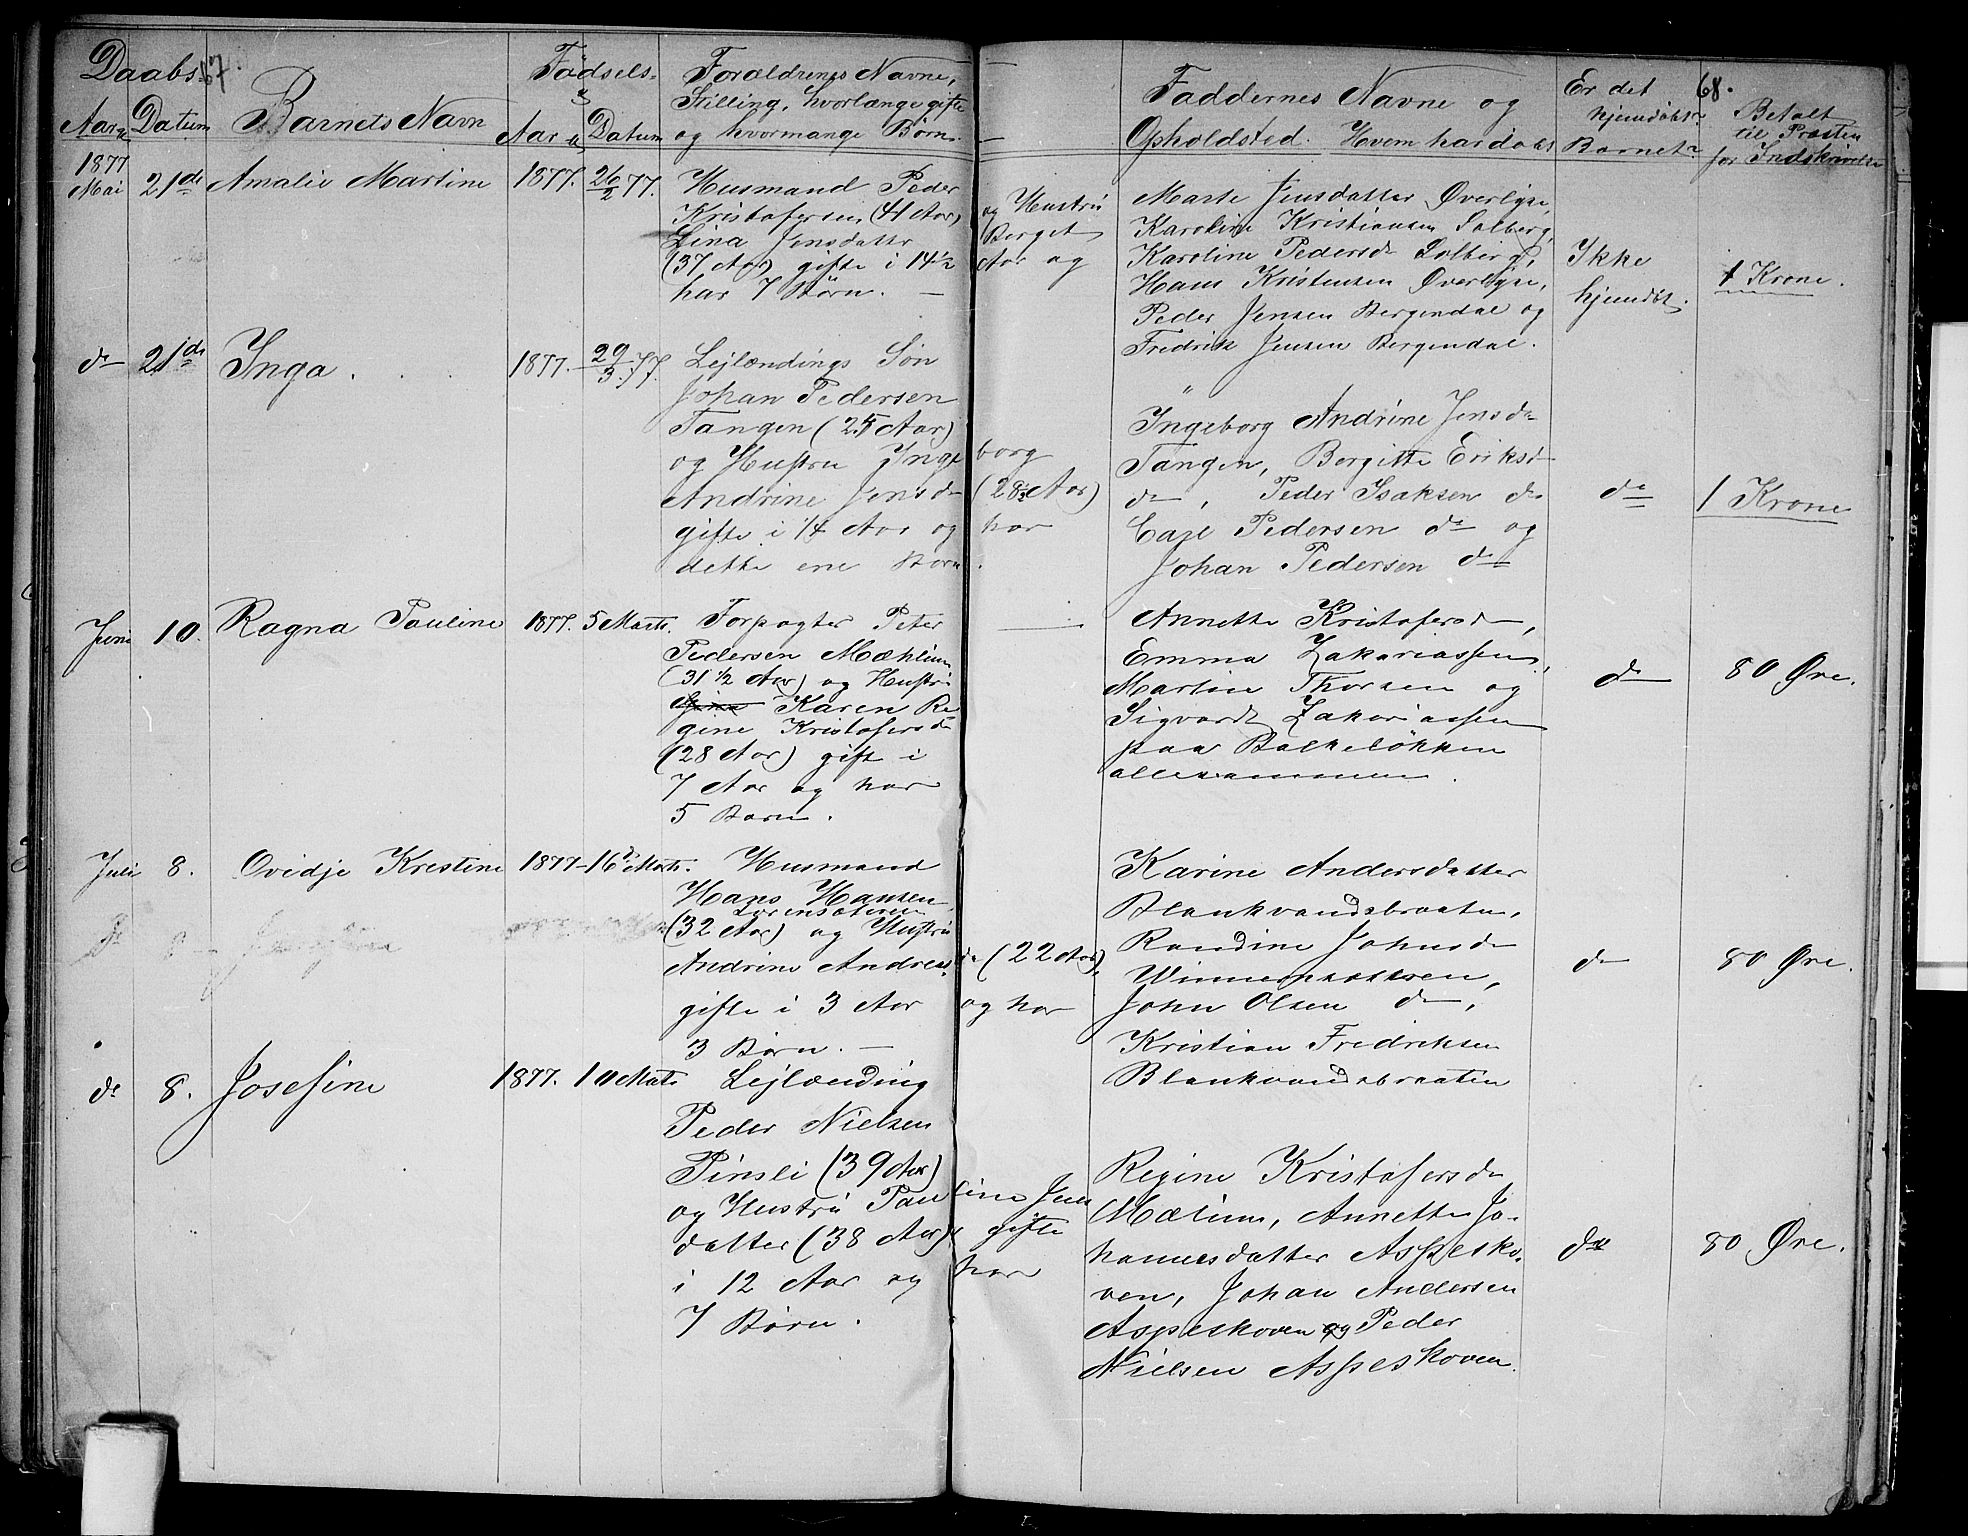 67.
Daabs-
Aar og Datum
Barnets Navn
Fødsels-
Aar og Datum
Forældrenes Navne,
Stilling, hvorlænge gifte
og hvormange Børn.
Faddernes Navne og
Opholdsted. Hvem har døbt
Er det
hjemdøbt?
Barnet?
68.
Betalt
til Præsten
for Indskrivelse
1877
Mai 21de Amalie Martine 1877. 26/2 77.
Husmand Peder
Kristofersen (41 Aar) og Hustru
Lina Jensdatter Berget
(37 Aar) gifte i 14½ Aar og
har 7 Børn. —
Marte Jensdatter Øverbye,
Karoline Kristiansen Solberg,
Karoline Pedersd Solberg,
Hans Kristensen Øverbye,
Peder Jensen Bergendal og
Fredrik Jensen Bergendal.
Ikke
hjemdøbt.
1 Krone.
do 21de Inga. 1877. 29/3 77.
Lejlændings Søn
Johan Pedersen
Tangen (25 Aar)
og Hustru Ingeborg
Andrine Jensd (28 Aar)
gifte i 1/4 Aar og har
dette ene Barn.
Ingeborg Andrine Jensd
Tangen, Bergitte Eriksd
do, Peder Isaksen do
Carl Pedersen do og
Johan Pedersen do
do
1 Krone
Juni 10. Ragna Pauline 1877. 5 Marts.
Forpagter Peter
Pedersen Mæhlum
(31 1/2 Aar) og Hustru
Karen Re
gine Kristofersd
(28 Aar) gift i
7 Aar og har
5 Børn.
Annette Kristofersd,
Emma Zakariassen,
Martin Thorsen og
Sigvardt Zakariassen
paa Balkeløkken
allesammen.
do
80 Øre.
Juli 8. Ovidje Kristine 1877 - 16de Marts.
Husmand
Hans Hansen
(32 Aar) og Hustru
Andrine Andreasd (22 Aar),
gifte i 3 Aar og har
3 Børn. —
Karine Andersdatter
Blankvandsbraaten,
Randine Johnsd
John Olsen do,
Kristian Fredriksen
Blankvandsbraaten
do
80 Øre.
do 8. Josefine 1877. 10 Marts
Lejlænding
Peder Nielsen
Pinsli (39 Aar)
og Hustru Pauline Jens
datter (38 Aar), gifte
i 12 Aar og har
7 Børn.
Regine Kristofersd
Mælum, Annette Jo-
hannesdatter Aspesko-
ven, Johan Andersen
Aspeskoven og Peder
Nielsen Aspeskoven.
do
80 Øre.